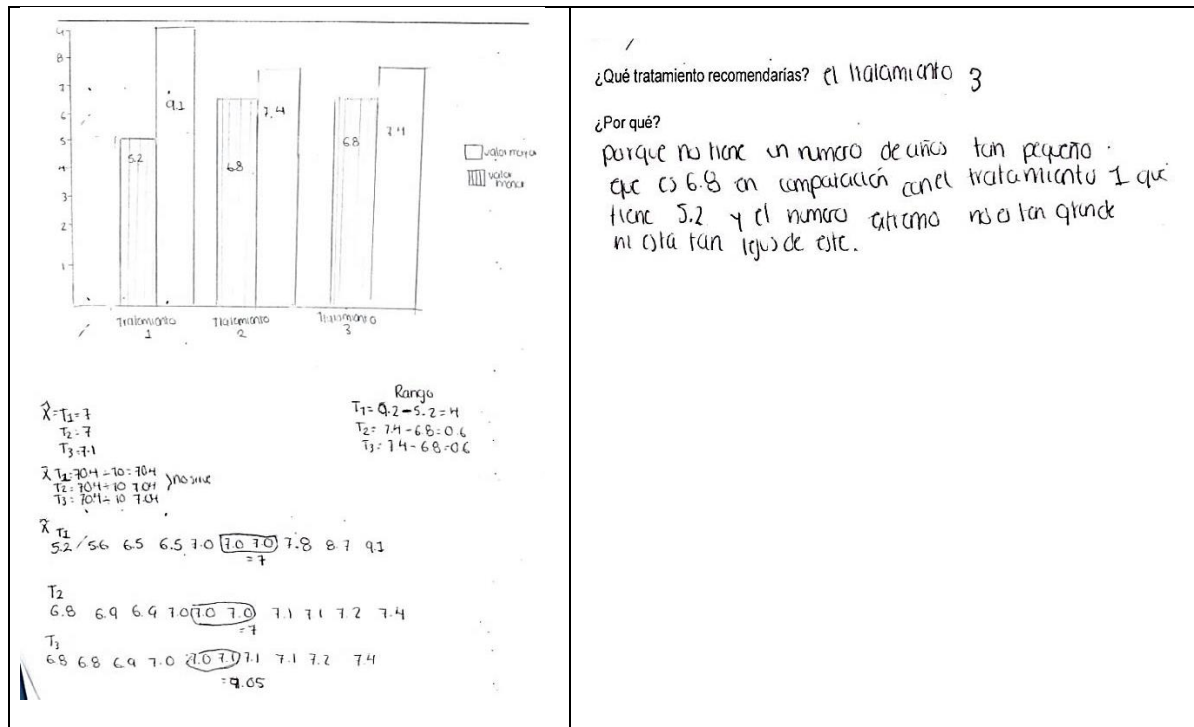 9
8
7
6
5
4
3
2
1
5.2
9.1
6.8
7.4
6.8
7.4
valor mayor
valor menor
Tratamiento 1
Tratamiento 2
Tratamiento 3
Rango
T1= 9.2-5.2=4
T2= 7.4-6.8=0.6
T3= 7.4-6.8=0.6
X̂=T1=7
T2=7
T3=7.1
x̄ T1=70.4÷10=704
T2=704÷10 7.04
T3=70.4÷10 7.04
no sirve
x̃ T1
5.2 / 5.6 6.5 6.5 7.0 7.0 7.0 7.8 8.7 9.1
=7
T2
6.8 6.9 6.9 7.0 7.0 7.0 7.1 7.1 7.2 7.4
=7
T3
6.8 6.8 6.9 7.0 7.0 7.1 7.1 7.1 7.2 7.4
=7.05
¿Qué tratamiento recomendarías? el tratamiento 3
¿Por qué?
porque no tiene un numero de años tan pequeño
que es 6.8 en comparación con el tratamiento 1 que
tiene 5.2 y el numero extremo no es tan grande
ni está tan lejos de este.